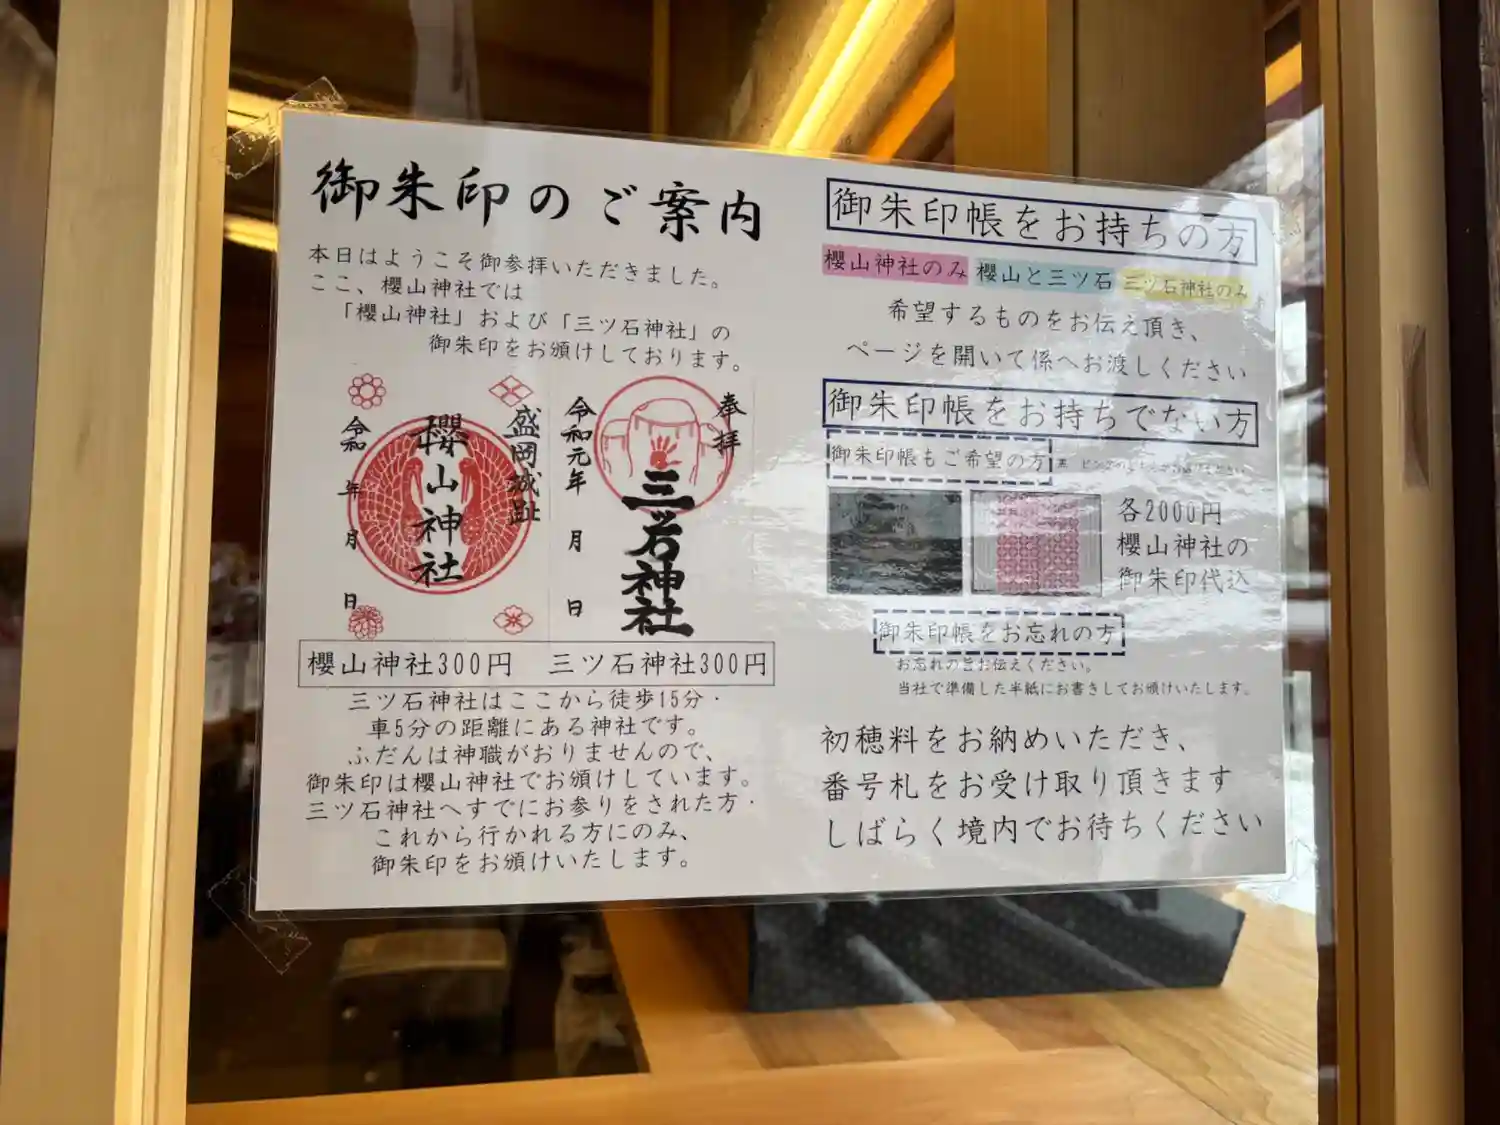 御朱印のご案内
本日はようこそ御参拝いただきました。
ここ、櫻山神社では
「櫻山神社」および「三ツ石神社」の
御朱印をお頒けしております。
盛岡城趾
櫻山神社
令和 年 月 日
奉拝
三ツ石神社
令和元年 月 日
櫻山神社300円 三ツ石神社300円
三ツ石神社はここから徒歩15分・
車5分の距離にある神社です。
ふだんは神職がおりませんので、
御朱印は櫻山神社でお頒けしています。
三ツ石神社へすでにお参りをされた方・
これから行かれる方にのみ、
御朱印をお頒けいたします。
御朱印帳をお持ちの方
櫻山神社のみ 櫻山と三ツ石 三ツ石神社のみ
希望するものをお伝え頂き、
ページを開いて係へお渡しください
御朱印帳をお持ちでない方
御朱印帳もご希望の方
各2000円
櫻山神社の
御朱印代込
御朱印帳をお忘れの方
お忘れの旨お伝えください。
当社で準備した半紙にお書きしてお頒けいたします。
初穂料をお納めいただき、
番号札をお受け取り頂きます
しばらく境内でお待ちください